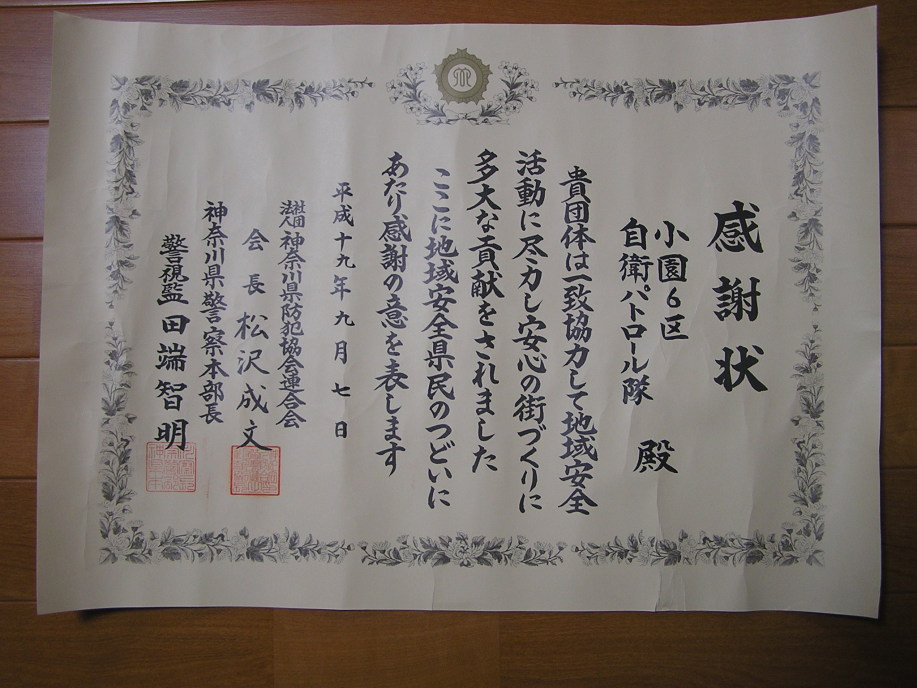 感謝状
小園6区
自衛パトロール隊 殿
貴団体は一致協力して地域安全
活動に尽力し安心の街づくりに
多大な貢献をされました
ここに地域安全県民のつどいに
あたり感謝の意を表します
平成十九年九月七日
社団法人神奈川県防犯協会連合会
会長 松沢成文
神奈川県警察本部長
警視監 田端智明